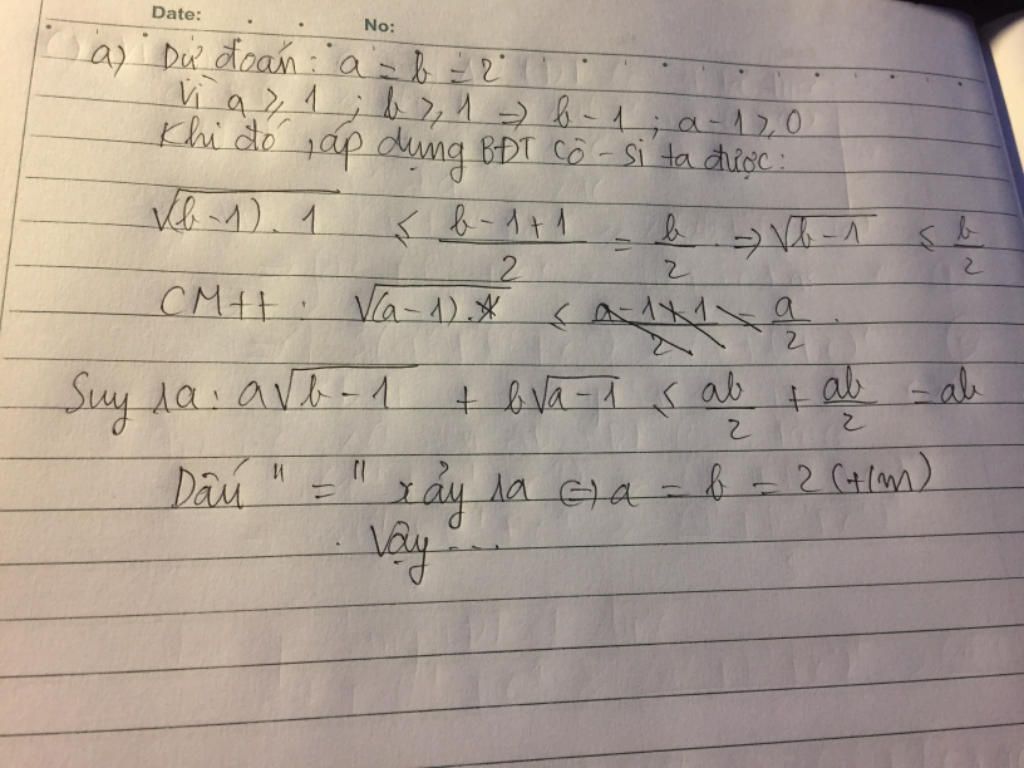 Date: No:
a) Dự đoán: a = b = 2
Vì a ≥ 1 ; b ≥ 1 ⇒ b - 1 ; a - 1 ≥ 0
Khi đó, áp dụng BĐT Cô-si ta được:
√(b-1).1 ≤ (b-1+1)/2 = b/2 ⇒ √(b-1) ≤ b/2
CMTT: √(a-1) ≤ a/2.
Suy ra: a√(b-1) + b√(a-1) ≤ ab/2 + ab/2 = ab
Dấu "=" xảy ra ⇔ a = b = 2 (t/m)
Vậy ...